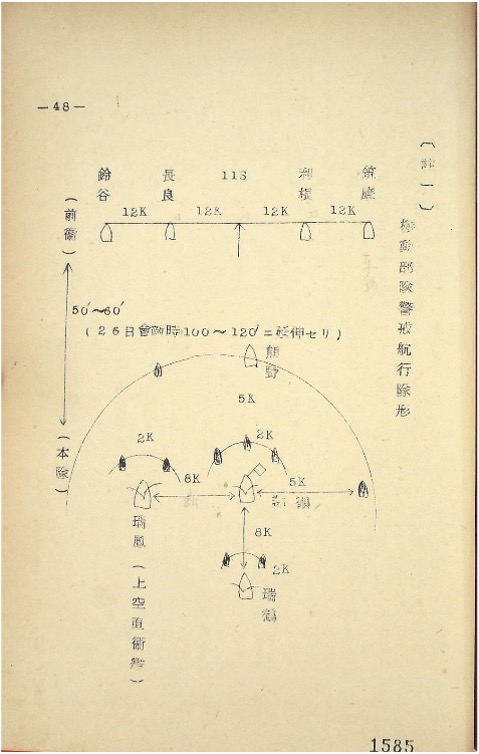 —48—
機動部隊警戒航行隊形
筑摩
利根
11S
長良
鈴谷
12K
12K
12K
12K
(前衛)
50′~60′
(26日會敵時100~120′ニ延伸セリ)
熊野
5K
(本隊)
2K
2K
8K
5K
瑞鳳(上空直衛艦)
8K
2K
瑞鶴
1585